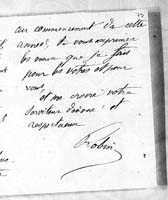 au commencement de cette
année, de vous exprimer
les vœux que je fais
pour les vôtres et pour
vous.
et me croire votre
serviteur dévoué et
respectueux
Robin